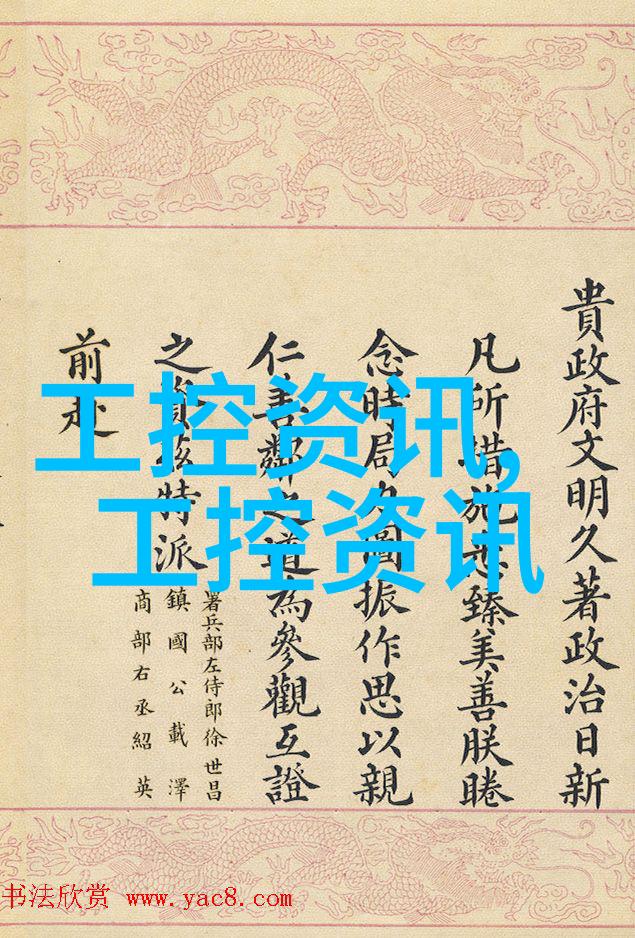 貴政府文明久著政治日新
凡所措施悉臻美善朕睠
念時局力圖振作思以親
仁善鄰之道為參觀互證
之資茲特派
署兵部左侍郎徐世昌
鎮國公載澤
商部右丞紹英
前赴
工控资讯,
工控资讯
书法欣赏 www.yac8.com